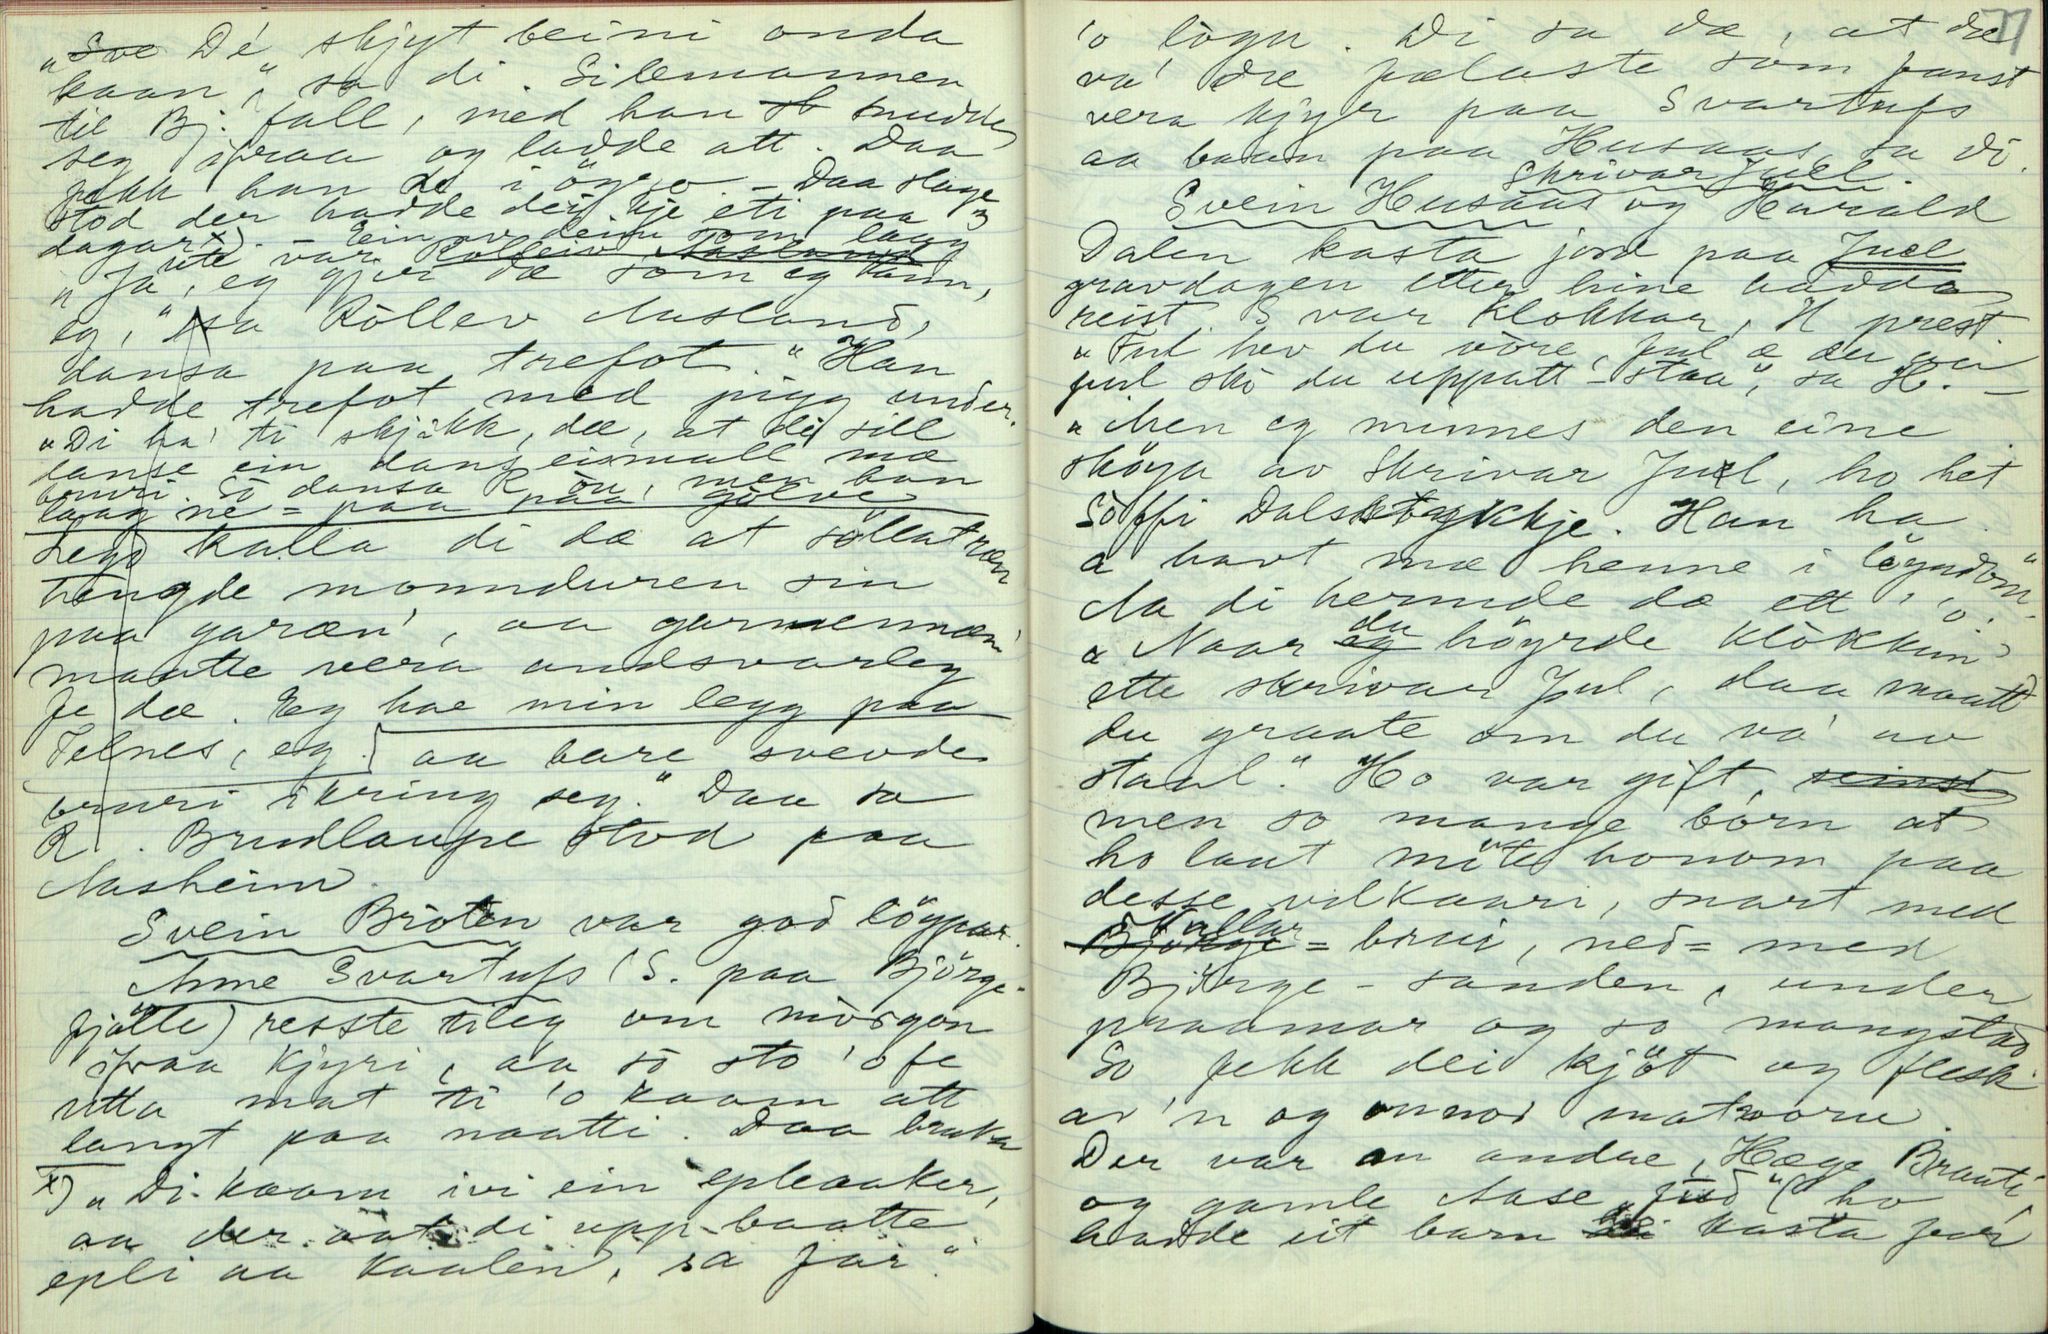 "Dé skjyt beini onda
kaan", sa di Silemannen
til Bj. fall, med han snudde
seg ifraa og ladde att. Daa
fekk han de i ögo. - Daa slage
stod der hadde dei kje eti paa 3
dagar x). - Ein av deim som laag
ute var Rolleiv Aasland
"Ja, eg gjer dæ som eg kann,
eg," sa Röllev Aasland,
dansa paa trefot. "Han
hadde trefot med pigg under.
"Di ha' ti skjikk, dæ, at di sill
danse ein dans eismall mæ
bruri. So dansa R òu, men han
laag ne = paa paa gòlve
Legd kalla di dæ at söllatræn
hengde monnduren sin
paa garæn', aa garmennæn'
maatte vera andsvarleg
fe dæ. Eg hae min legg paa
Felnes, eg aa bare svevde
bruri ikring seg." Daa sa
R. Brudlaupe stod paa
Aasheim.
Svein Bròten var god lögpar.
Anne Svartufs (S. paa Björge-
fjötte) resste tileg om mòrgon
ifraa kjyri, aa sò sto 'o fe
utta mat ti 'o kaam att
langt paa naatti. Daa bruka
x) "Di kaam ivi ein epleaaker,
aa der aat di upp baatte
epli aa kaalen, sa far."
77
'o lògn. Di sa dæ, at dæ
va' dæ fælaste som fanst
vera kjyr paa Svartufs
aa baan paa Husaas, sa di.
Skrivar Juel.
Svein Husaas og Harald
Dalen kasta jord paa Juel
gravdagen etter hine hadde
reist. S var klokkar, H prest
"Ful hev du vòre, ful æ du
ful ska du uppatt-staa", sa H. -
"Men eg minnes den eine
sköga av Skrivar Juel, ho het
Söffi Dalstykkje. Han ha
a havt mæ henne i löyndom"
Aa di hermde dæ ett 'o:
"Naar du höyrde klòkkun
ette skrivar Jul, daa maatt
du graate om du va' av
staal." Ho var gift,
men so mange bòrn at
ho laut möte honom paa
desse vilkaari, snart med
Skullar = brui, ned = med
Björge - sanden, under
praamar og so mangstad
So fekk dei kjöt og flesk
av 'n og onnor matvoru.
Der var en andre, Hæge Braati
og gamle Aase "Jud" (ho
hadde eit barn kasta for